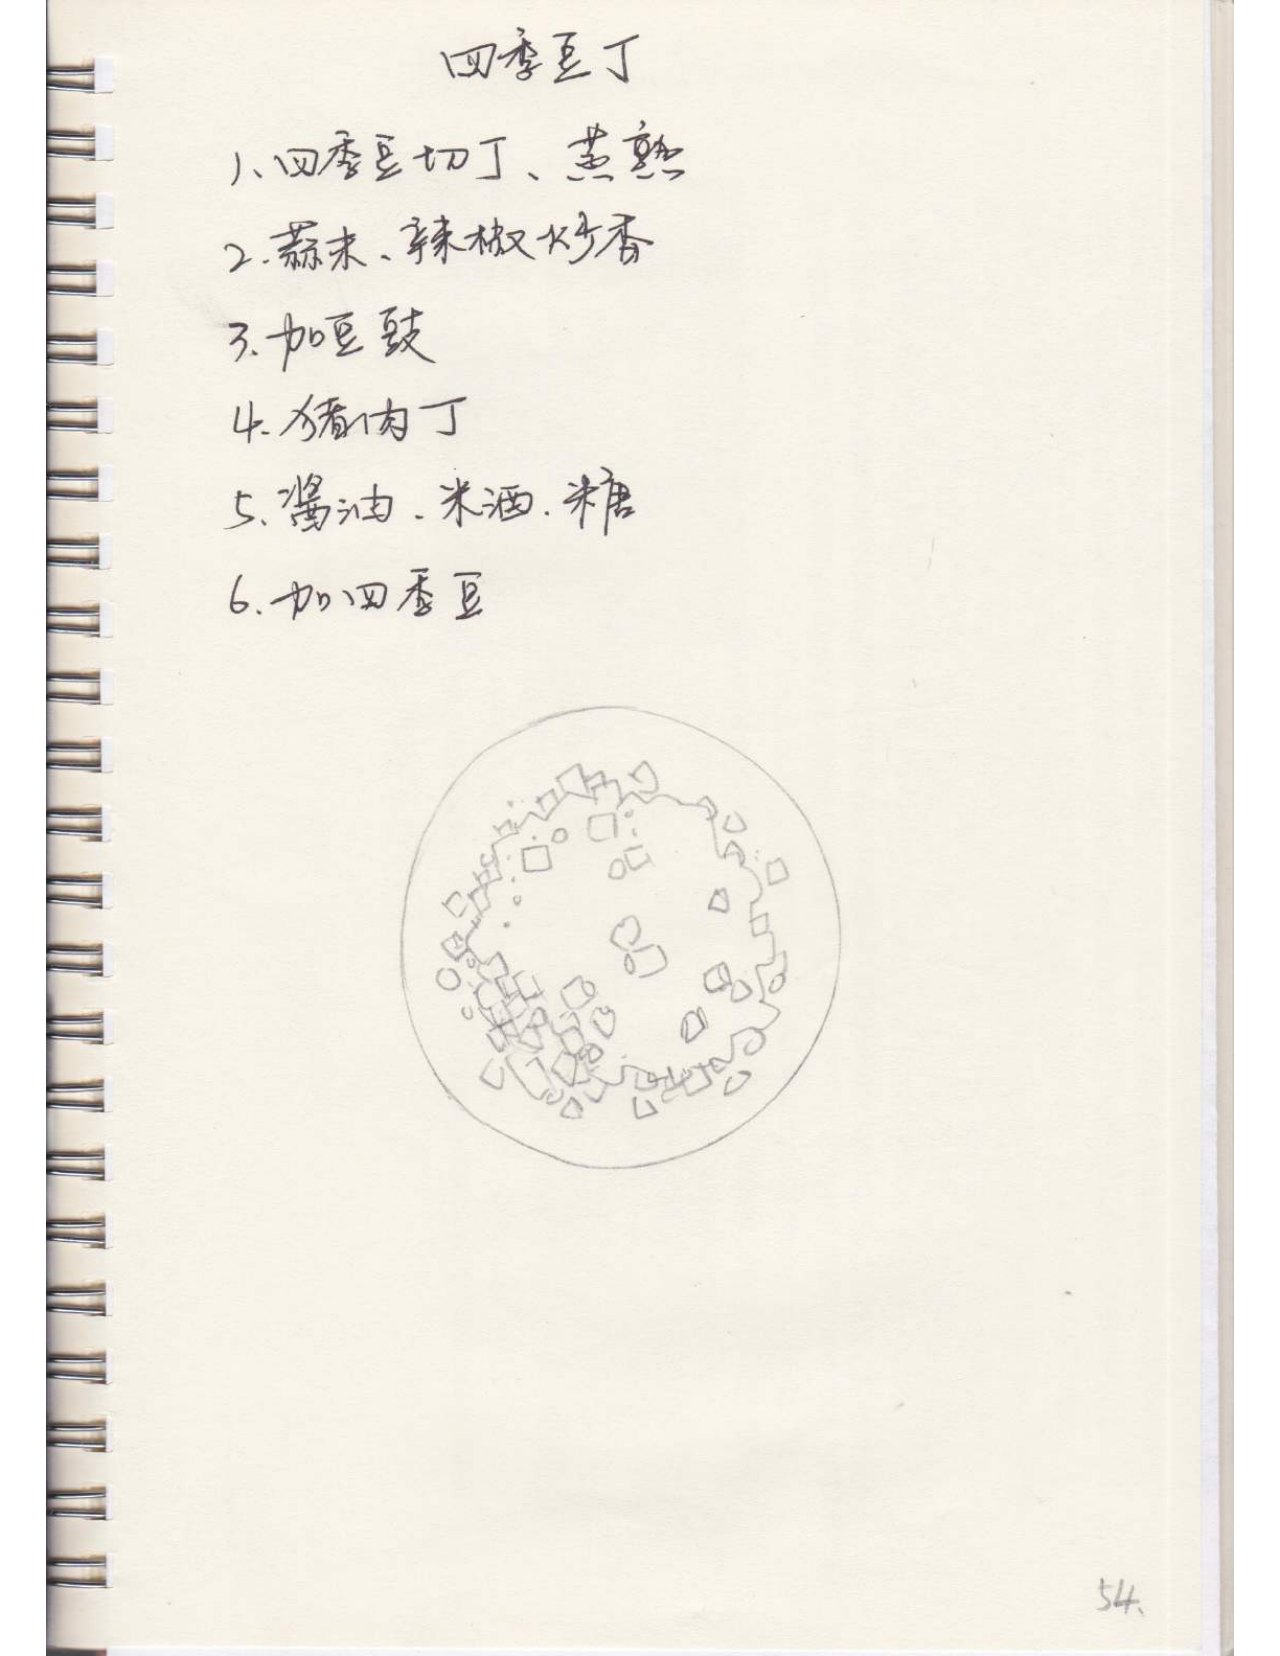 四季豆丁
1、四季豆切丁、蒸熟
2.蒜末、辣椒炒香
3.加豆豉
4.猪肉丁
5.醬油.米酒.糖
6.加四季豆
54.